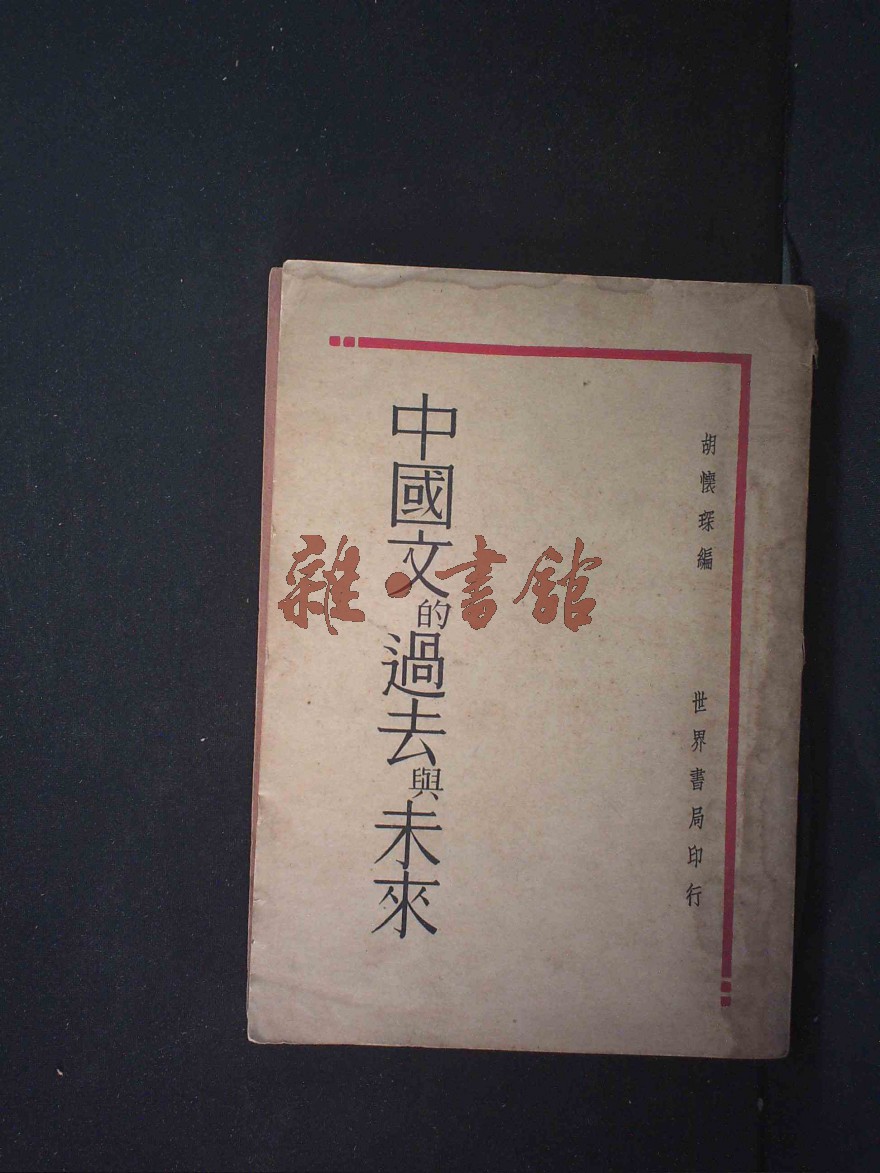 胡懷琛編
世界書局印行
中國文的過去與未來
雜·書館